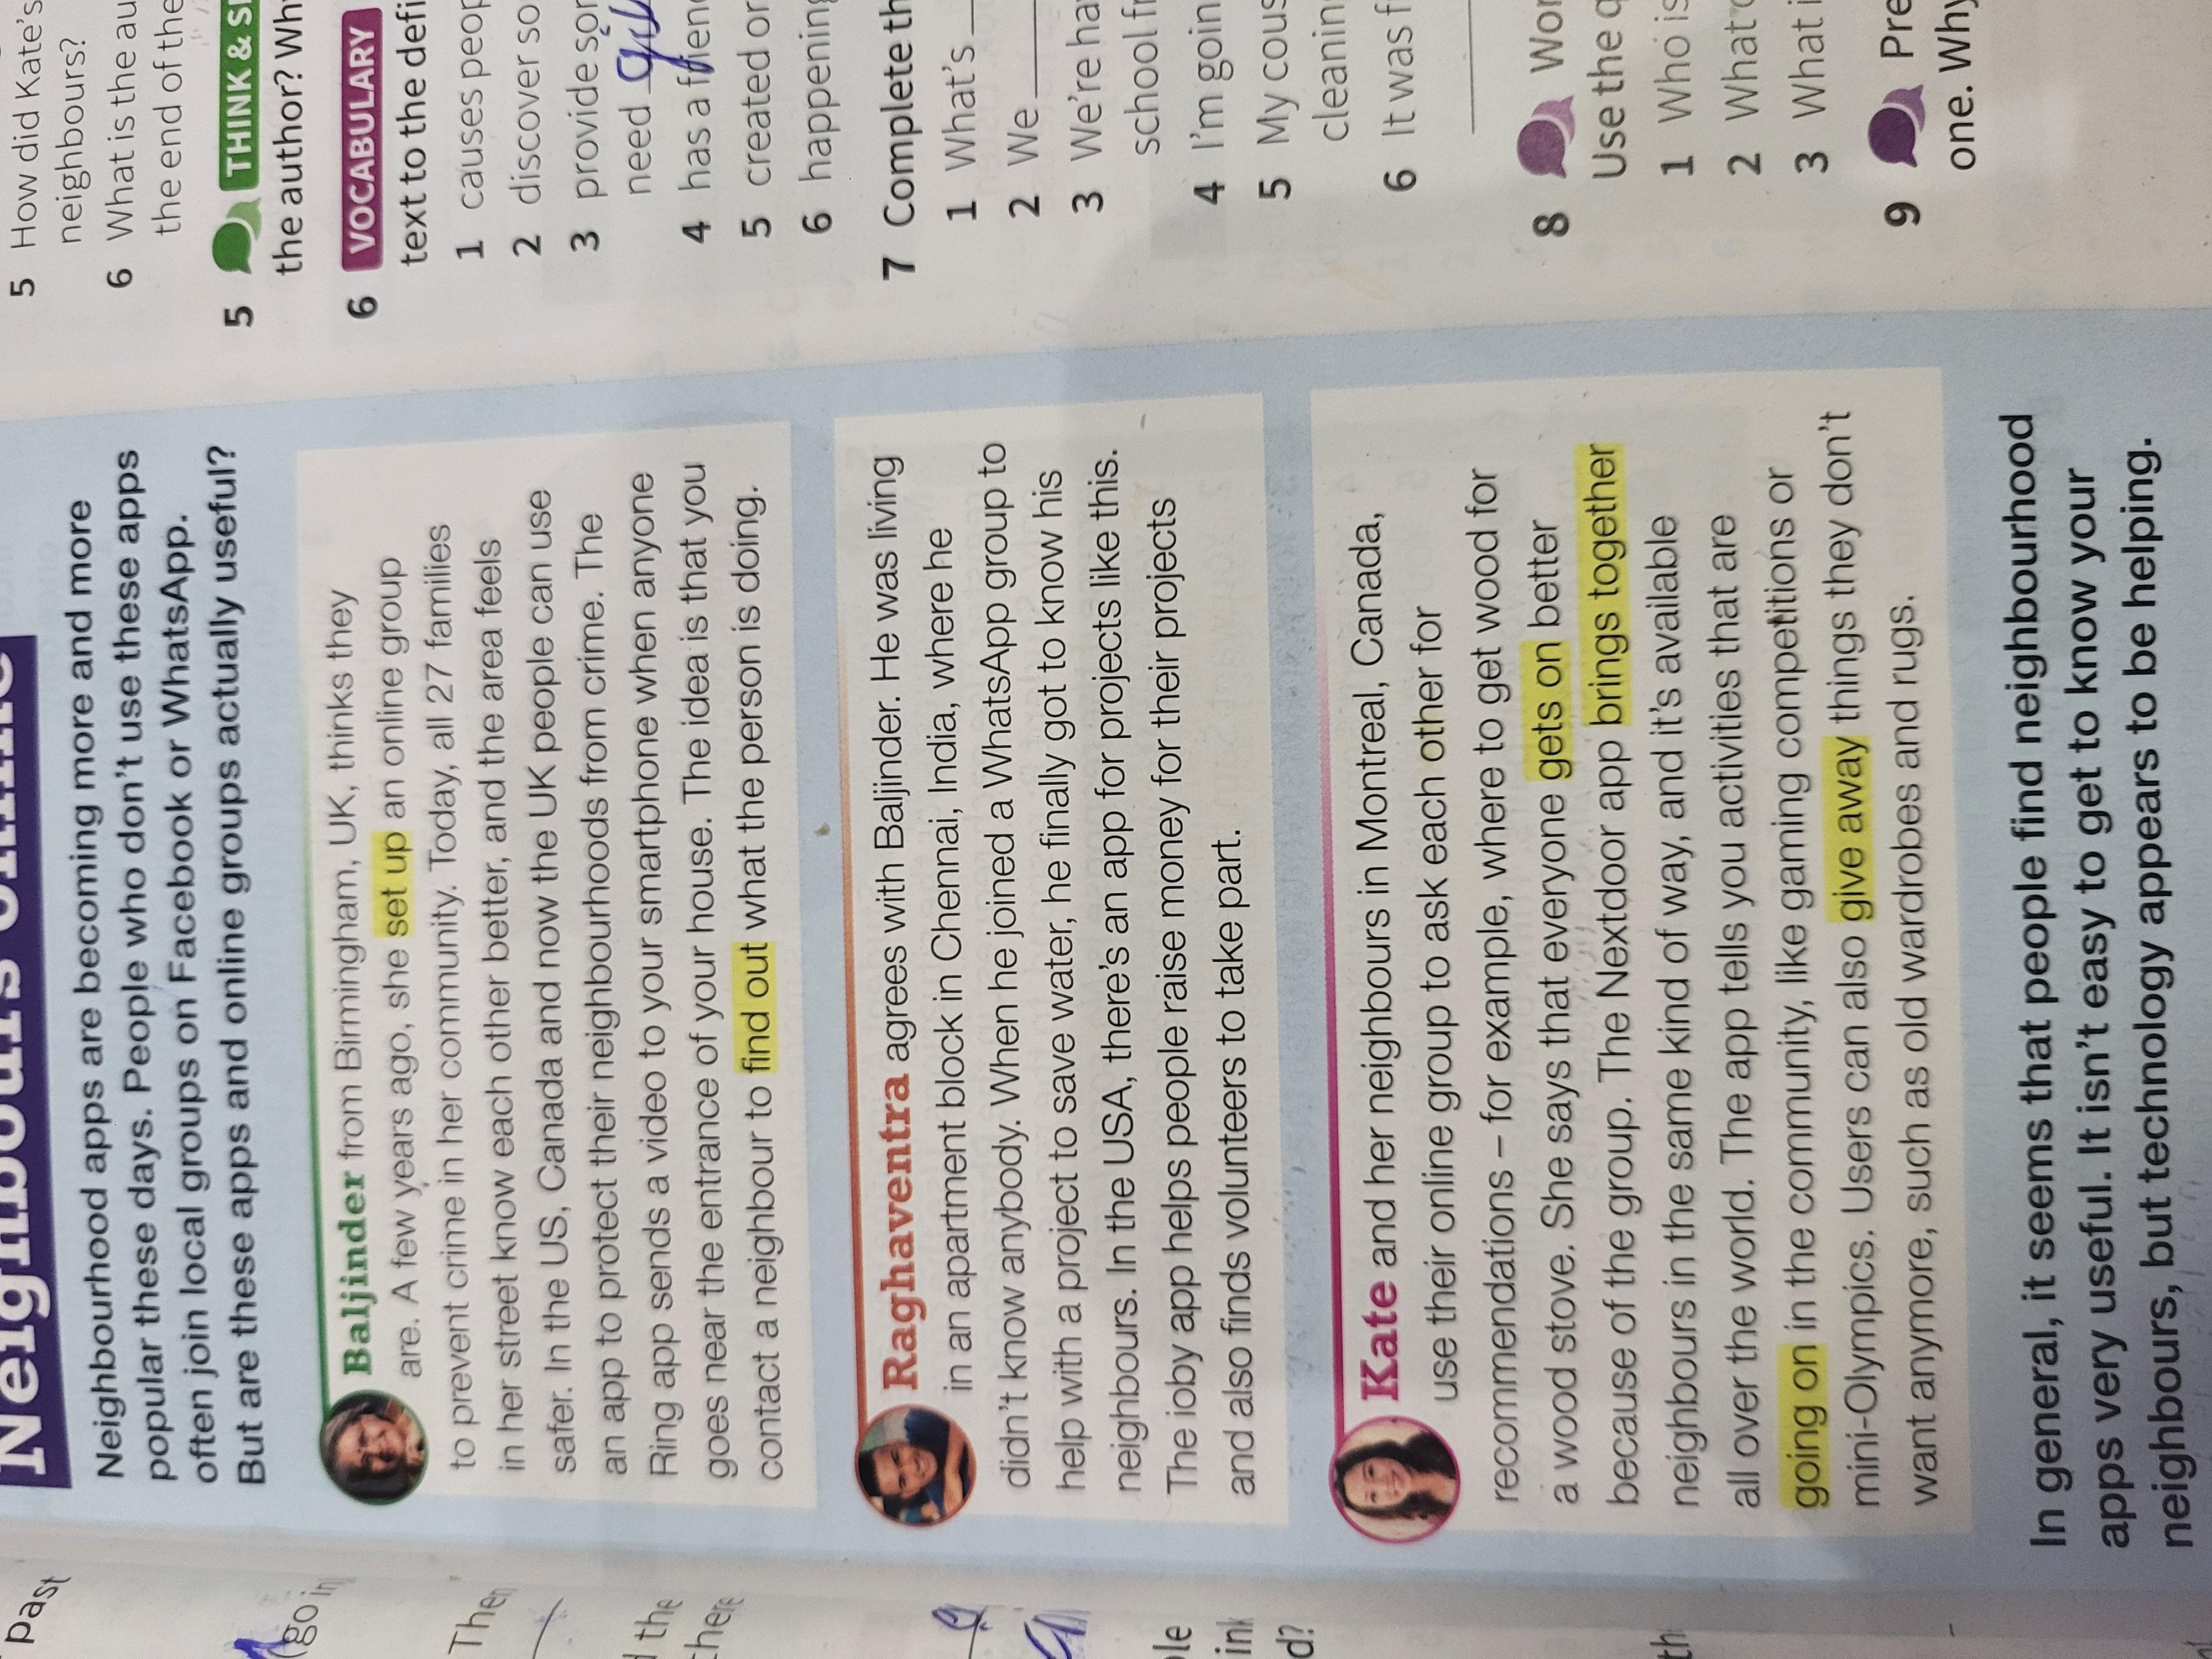 Neighbours online
Neighbourhood apps are becoming more and more
popular these days. People who don't use these apps
often join local groups on Facebook or WhatsApp.
But are these apps and online groups actually useful?
Baljinder from Birmingham, UK, thinks they
are. A few years ago, she set up an online group
to prevent crime in her community. Today, all 27 families
in her street know each other better, and the area feels
safer. In the US, Canada and now the UK people can use
an app to protect their neighbourhoods from crime. The
Ring app sends a video to your smartphone when anyone
goes near the entrance of your house. The idea is that you
contact a neighbour to find out what the person is doing.
Raghaventra agrees with Baljinder. He was living
in an apartment block in Chennai, India, where he
didn't know anybody. When he joined a WhatsApp group to
help with a project to save water, he finally got to know his
neighbours. In the USA, there's an app for projects like this.
The ioby app helps people raise money for their projects
and also finds volunteers to take part.
Kate and her neighbours in Montreal, Canada,
use their online group to ask each other for
recommendations – for example, where to get wood for
a wood stove. She says that everyone gets on better
because of the group. The Nextdoor app brings together
neighbours in the same kind of way, and it's available
all over the world. The app tells you activities that are
going on in the community, like gaming competitions or
mini-Olympics. Users can also give away things they don't
want anymore, such as old wardrobes and rugs.
In general, it seems that people find neighbourhood
apps very useful. It isn't easy to get to know your
neighbours, but technology appears to be helping.
5 How did Kate's
neighbours?
6 What is the au
the end of the
5 THINK & S
the author? Wh
6 VOCABULARY
text to the defi
1 causes peop
2 discover so
3 provide som
need
4 has a frien
5 created or
6 happening
7 Complete th
1 What's
2 We
3 We're ha
school fr
4 I'm goin
5 My cous
cleanin
6 It was f
8 Wor
Use the q
1 Who is
2 What
3 What i
9 Pre
one. Why
past
going
Then
the
there
ple
ink
d?
th